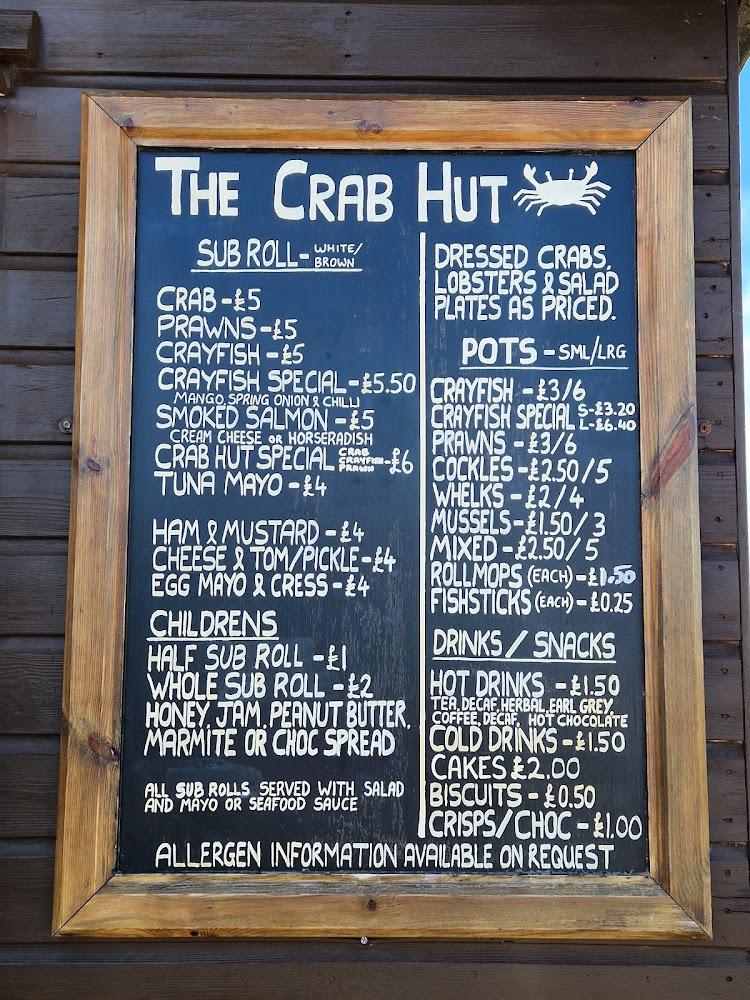 THE CRAB HUT
SUB ROLL - WHITE/
BROWN
CRAB - £5
PRAWNS - £5
CRAYFISH - £5
CRAYFISH SPECIAL - £5.50
MANGO, SPRING ONION & CHILLI
SMOKED SALMON - £5
CREAM CHEESE OR HORSERADISH
CRAB HUT SPECIAL CRAB CRAYFISH PRAWN - £6
TUNA MAYO - £4
HAM & MUSTARD - £4
CHEESE & TOM/PICKLE - £4
EGG MAYO & CRESS - £4
CHILDRENS
HALF SUB ROLL - £1
WHOLE SUB ROLL - £2
HONEY, JAM, PEANUT BUTTER,
MARMITE OR CHOC SPREAD
ALL SUB ROLLS SERVED WITH SALAD
AND MAYO OR SEAFOOD SAUCE
DRESSED CRABS,
LOBSTERS & SALAD
PLATES AS PRICED.
POTS - SML/LRG
CRAYFISH - £3/6
CRAYFISH SPECIAL S-£3.20
L-£6.40
PRAWNS - £3/6
COCKLES - £2.50/5
WHELKS - £2/4
MUSSELS - £1.50/3
MIXED - £2.50/5
ROLLMOPS (EACH) - £1.50
FISHSTICKS (EACH) - £0.25
DRINKS/SNACKS
HOT DRINKS - £1.50
TEA, DECAF, HERBAL, EARL GREY,
COFFEE, DECAF, HOT CHOCOLATE
COLD DRINKS - £1.50
CAKES £2.00
BISCUITS - £0.50
CRISPS/CHOC - £1.00
ALLERGEN INFORMATION AVAILABLE ON REQUEST